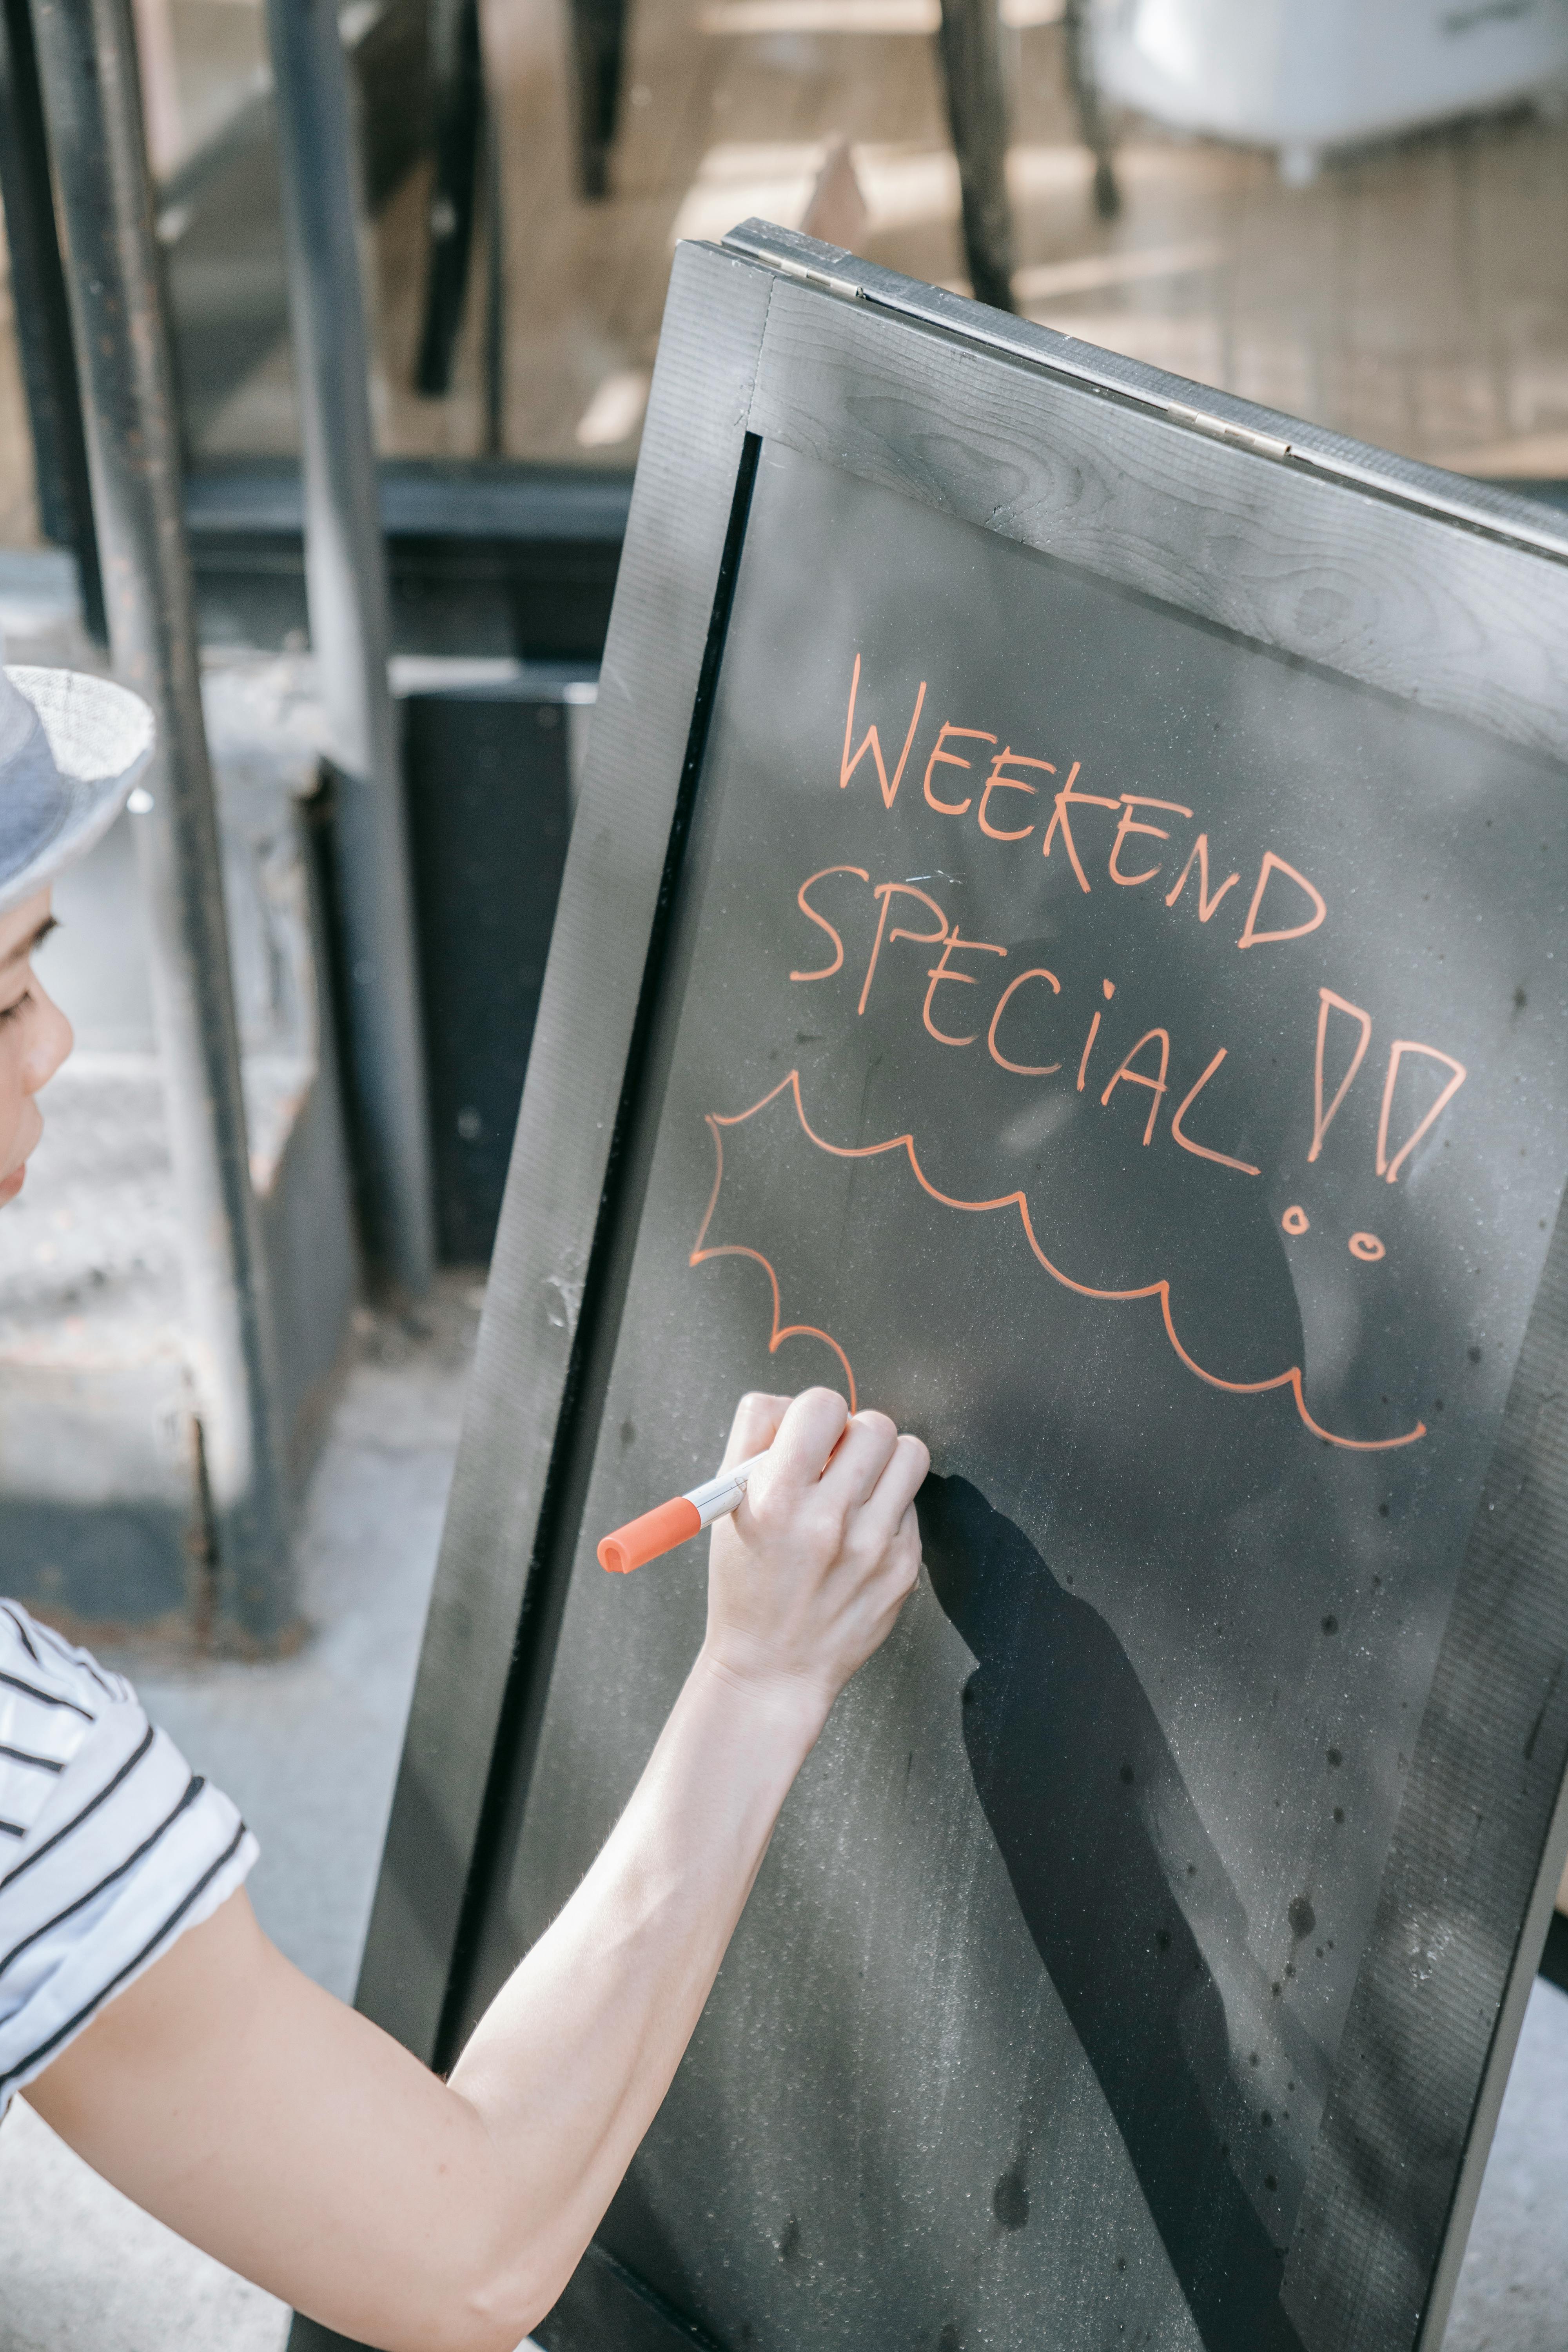 WEEKEND
SPECiAL!!